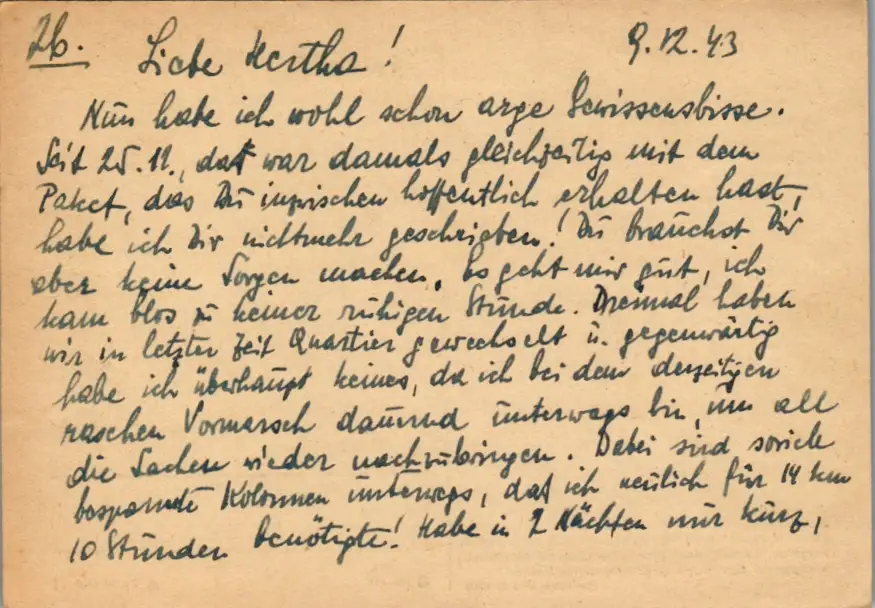 26. Liebe Hertha! 9.12.43
Nun habe ich wohl schon arge Gewissensbisse.
Seit 25.11., das war damals gleichzeitig mit dem
Paket, das Du inzwischen hoffentlich erhalten hast,
habe ich Dir nichtmehr geschrieben! Du brauchst Dir
aber keine Sorgen machen. Es geht mir gut, ich
kam blos zu keiner ruhigen Stunde. Dreimal haben
wir in letzter Zeit Quartier gewechselt u. gegenwärtig
habe ich überhaupt keines, da ich bei dem derzeitigen
raschen Vormarsch dauernd unterwegs bin, um all
die Sachen wieder nachzubringen. Dabei sind soviele
bespannte Kolonnen unterwegs, daß ich neulich für 14 km
10 Stunden benötigte! Habe in 2 Nächten nur kurz,